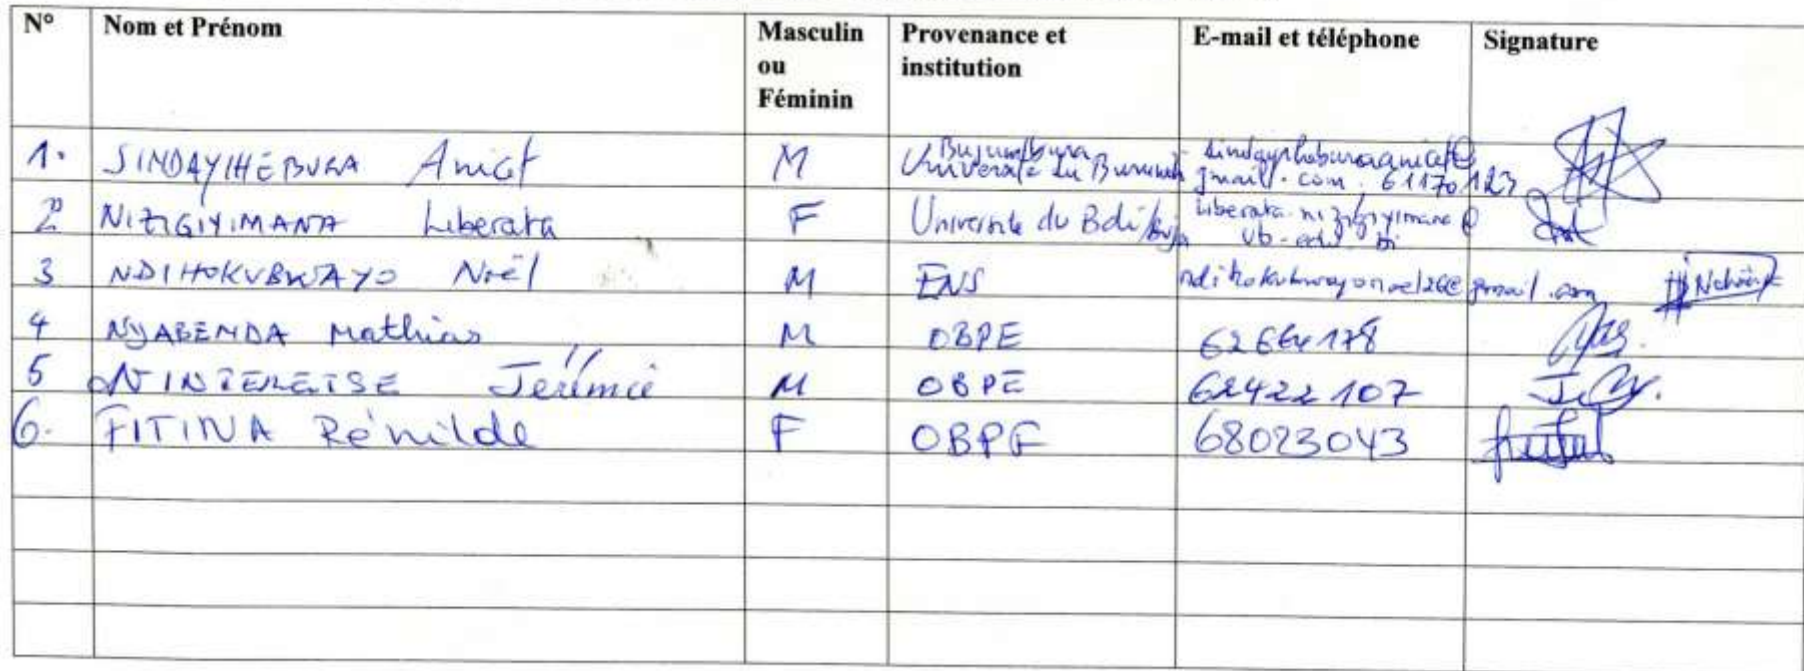 N° Nom et Prénom Masculin ou Féminin Provenance et institution E-mail et téléphone Signature
1. SINDAYIHEBURA Anicet M Bujumbura Université du Burundi sindayiheburaanicet@gmail.com. 61170123
2 NIZIGIYIMANA Liberata F Université du Bdi/Buja liberata.nizigiyimana@ub.edu.bi
3 NDIHOKUBWAYO Noël M ENS ndihokubwayonoel26@gmail.com
4 NYABENDA Mathias M OBPE 62664178
5 NINTERETSE Jérémie M OBPE 62422107
6. FITINA Rénilde F OBPE 68023043